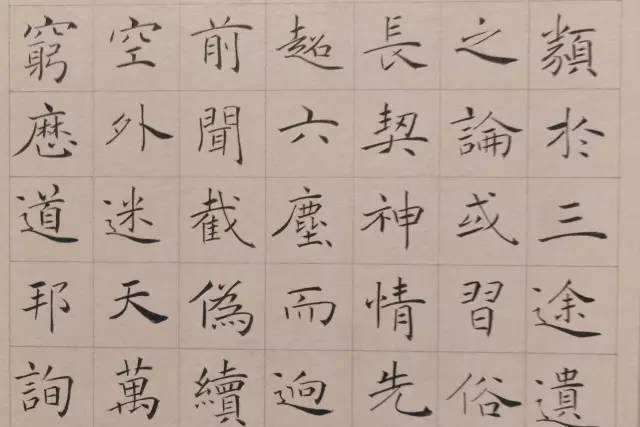 纇於三途遺
之論或習俗
長契神情先
超六塵而迥
前聞截偽續
空外迷天萬
窮歷道邦詢